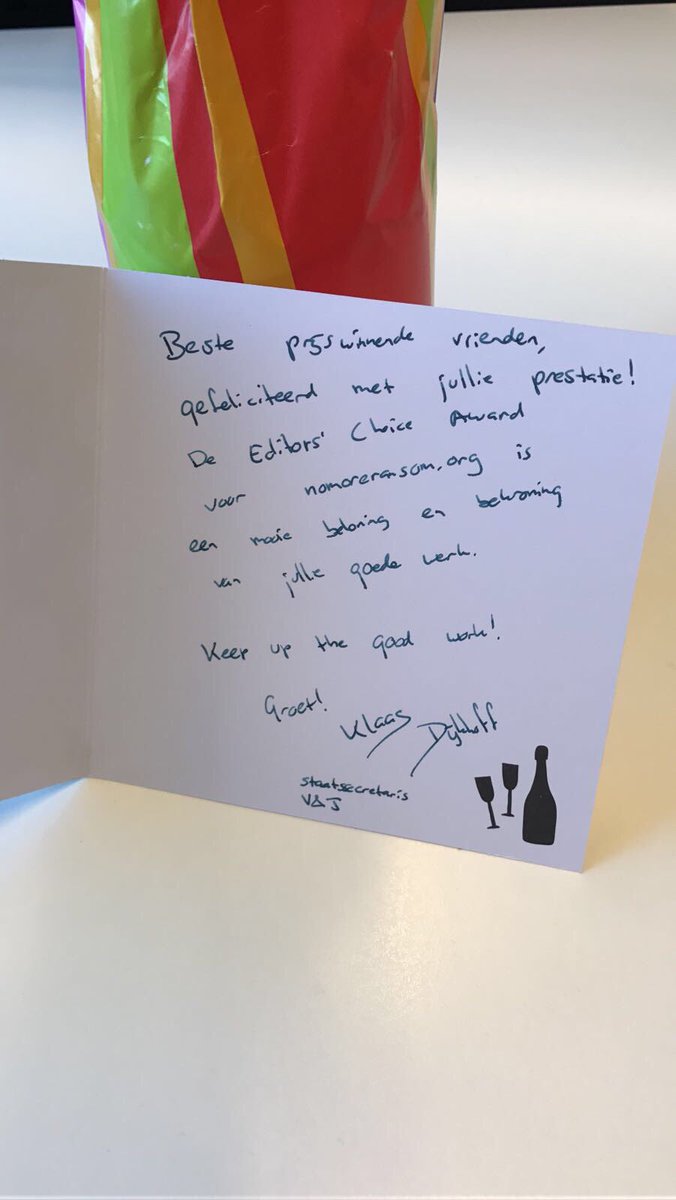 Beste prijswinnende vrienden,
gefeliciteerd met jullie prestatie!
De Editors' Choice Award
voor nomoreransom.org is
een mooie beloning en bekroning
van jullie goede werk.
Keep up the good work!
Groet!
Klaas Dijkhoff
staatsecretaris
V&J